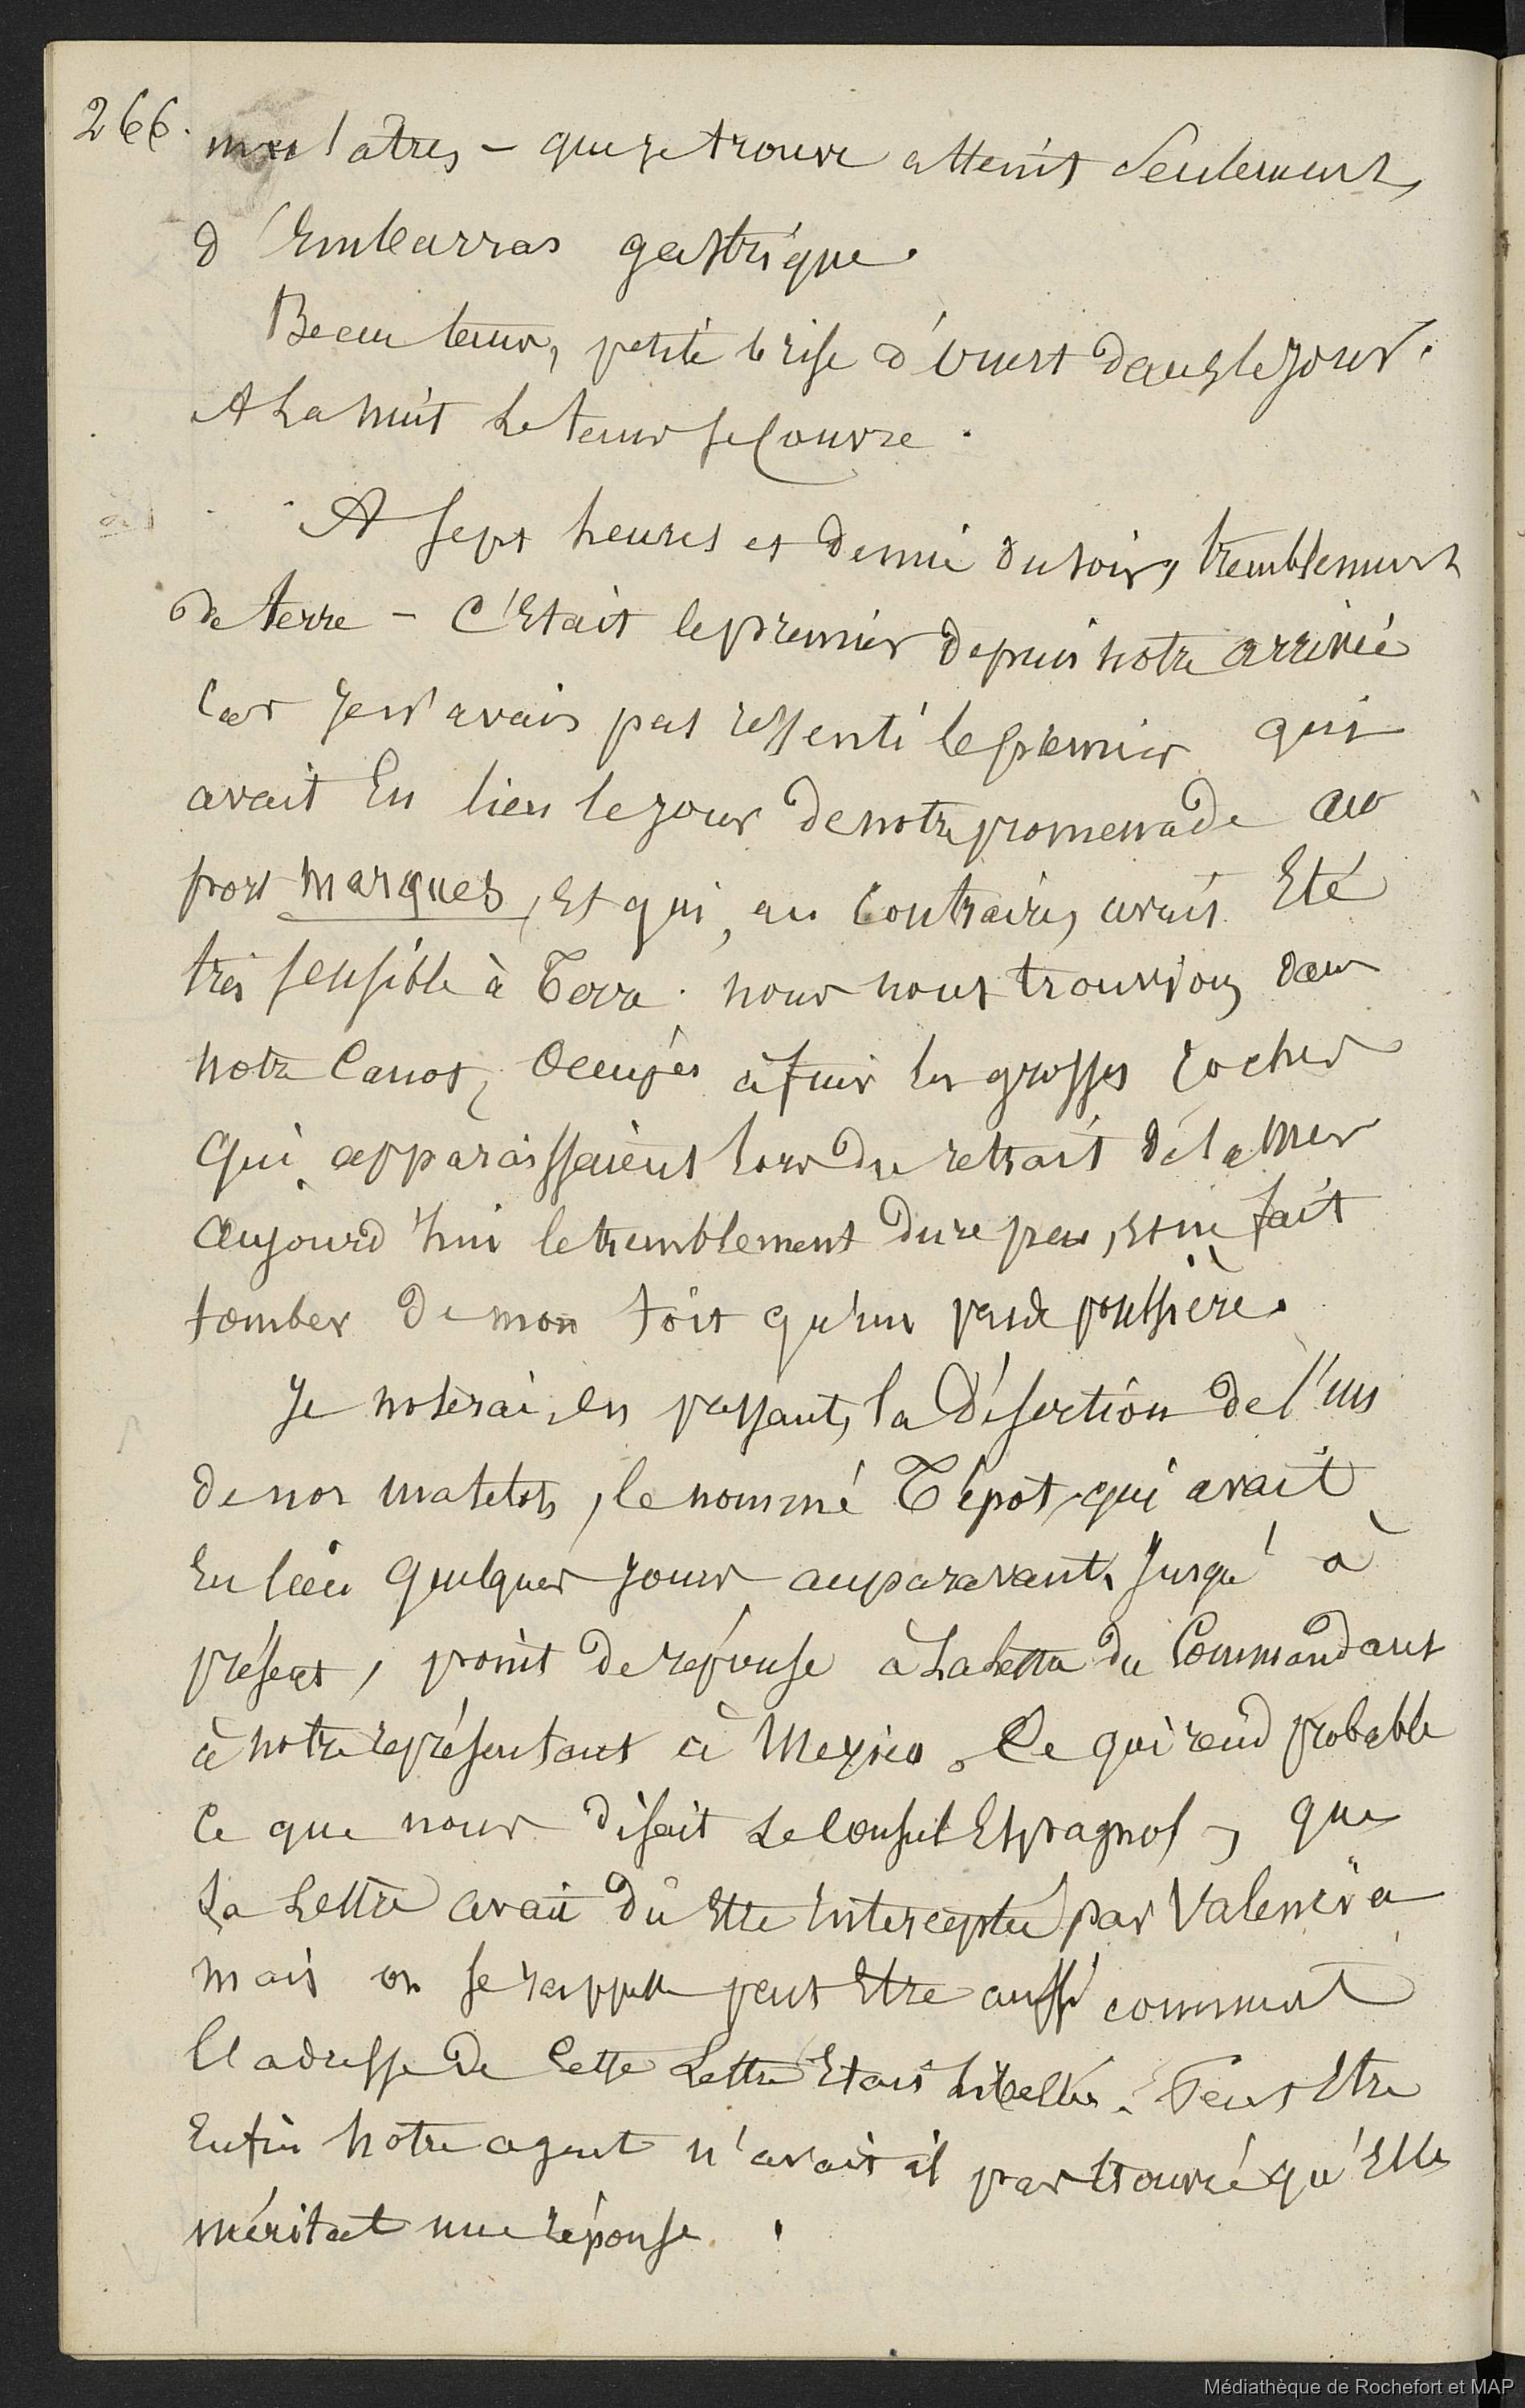 266.
mulatres – que je trouve atteint seulement
d'Embarras gastrique.
Beau temps, petite brise d'Ouest dans le jour.
A La nuit Le temps se Couvre.
A sept heures et demie du soir, tremblement
de terre – C'Etait le premier depuis notre arrivée
Car Je n'avais pas ressenti le premier qui
avait Eu lieu le jour de notre promenade au
port Marques, Et qui, au Contraire, avait Eté
très sensible à Terre. nous nous trouvions dans
notre Canot, Occupés à fuir les grosses roches
qui apparaissaient lors du retrait de la Mer
Aujourd'hui le tremblement dure peu, Et ne fait
tomber de mon toit qu'un peu de poussière.
Je noterai, En passant, la Désertion de l'un
de nos matelots, le nommé Tépot, qui avait
Eu lieu quelques jours auparavant. Jusqu'à
présent, point de réponse à La Lettre du Commandant
à notre représentant à Mexico. Ce qui rend probable
Ce que nous disait Le Consul Espagnol, que
La Lettre avait dû Etre Interceptée par Valencia
mais on se rappelle peut Etre aussi comment
L'adresse de Cette Lettre Etait Libellée. Peut Etre
Enfin Notre agent n'avait il pas trouvé qu'Elle
méritat une réponse.
Médiathèque de Rochefort et MAP